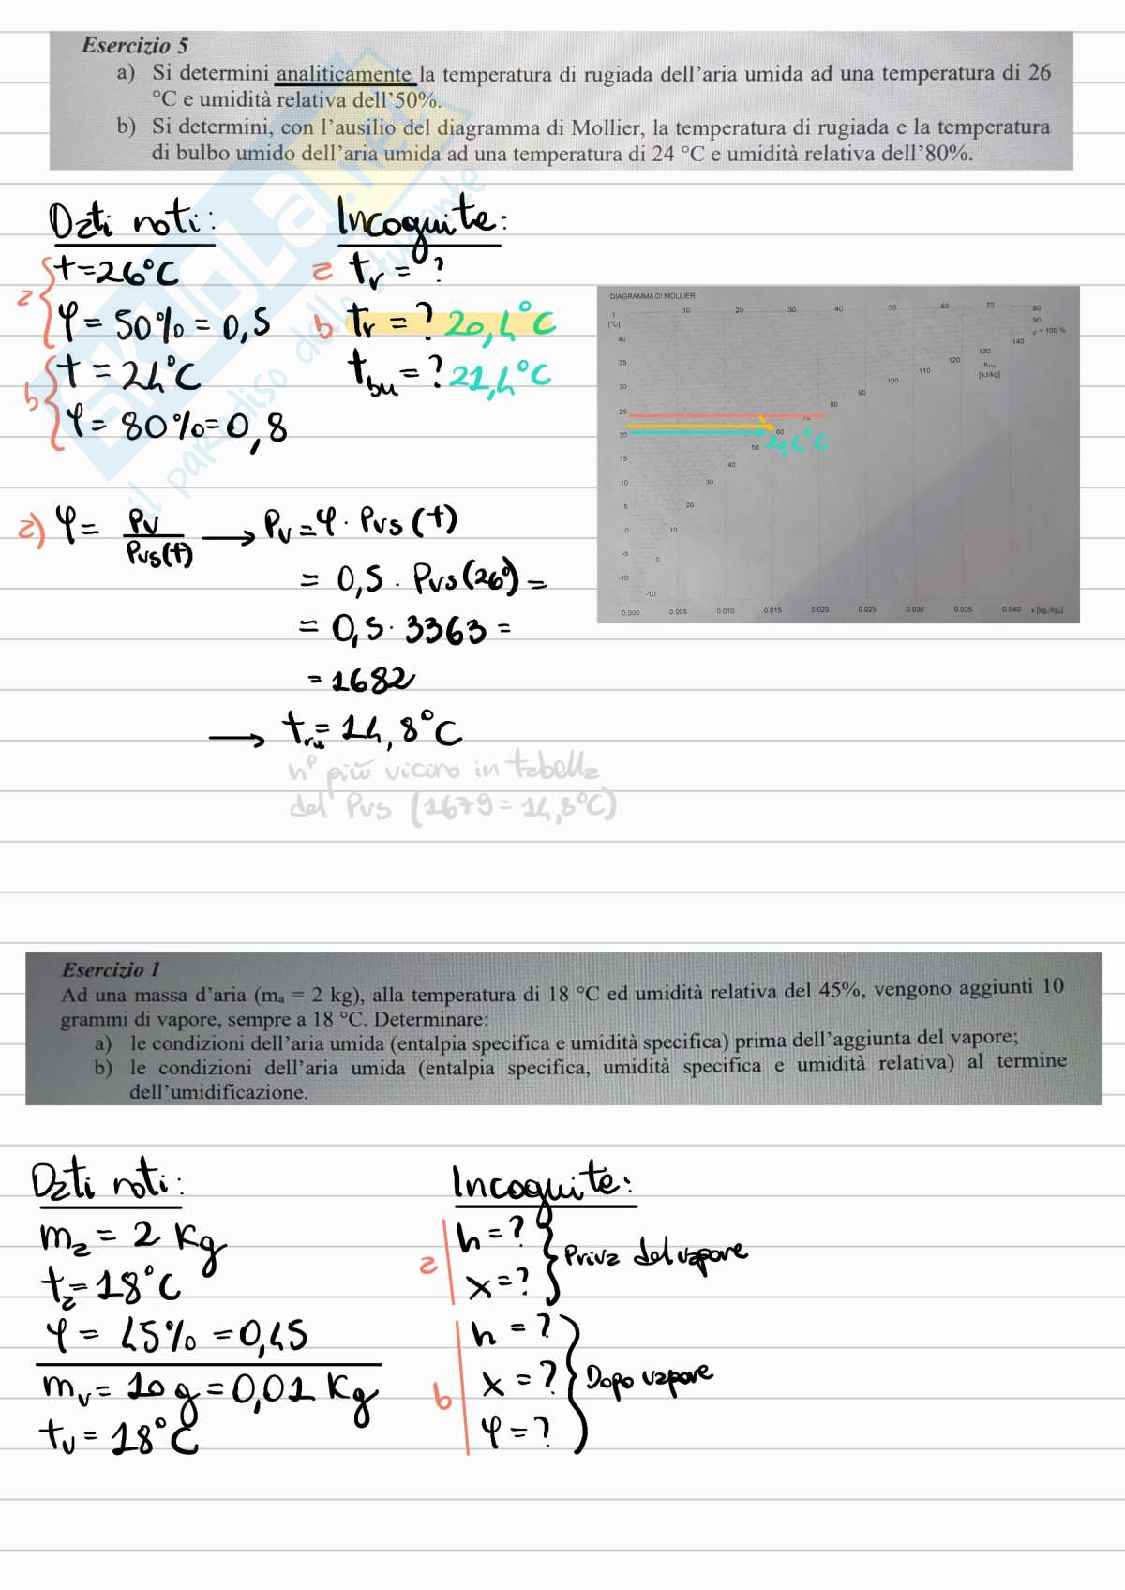 Esercizio 5
a) Si determini analiticamente la temperatura di rugiada dell'aria umida ad una temperatura di 26
°C e umidità relativa dell'50%.
b) Si determini, con l'ausilio del diagramma di Mollier, la temperatura di rugiada e la temperatura
di bulbo umido dell'aria umida ad una temperatura di 24 °C e umidità relativa dell'80%.
Dati noti:
Incognite:
a
t=26°C
φ = 50% = 0,5
b
t = 24°C
φ = 80% = 0,8
a tr = ?
b tr = ? 20,4°C
tbu = ? 21,4°C
DIAGRAMMA DI MOLLIER
a) φ = Pv / Pvs(t) → Pv = φ · Pvs(t)
= 0,5 · Pvs(26°) =
= 0,5 · 3363 =
= 1682
→ tru = 14,8°C
n° più vicino in tabella
del Pvs (1679 = 14,8°C)
Esercizio 1
Ad una massa d'aria (ma = 2 kg), alla temperatura di 18 °C ed umidità relativa del 45%, vengono aggiunti 10
grammi di vapore, sempre a 18 °C. Determinare:
a) le condizioni dell'aria umida (entalpia specifica e umidità specifica) prima dell'aggiunta del vapore;
b) le condizioni dell'aria umida (entalpia specifica, umidità specifica e umidità relativa) al termine
dell'umidificazione.
Dati noti:
ma = 2 Kg
ta = 18°C
φ = 45% = 0,45
mv = 10 g = 0,01 Kg
tv = 18°C
Incognite:
a
h = ?
x = ?
Priva del vapore
b
h = ?
x = ?
φ = ?
Dopo vapore